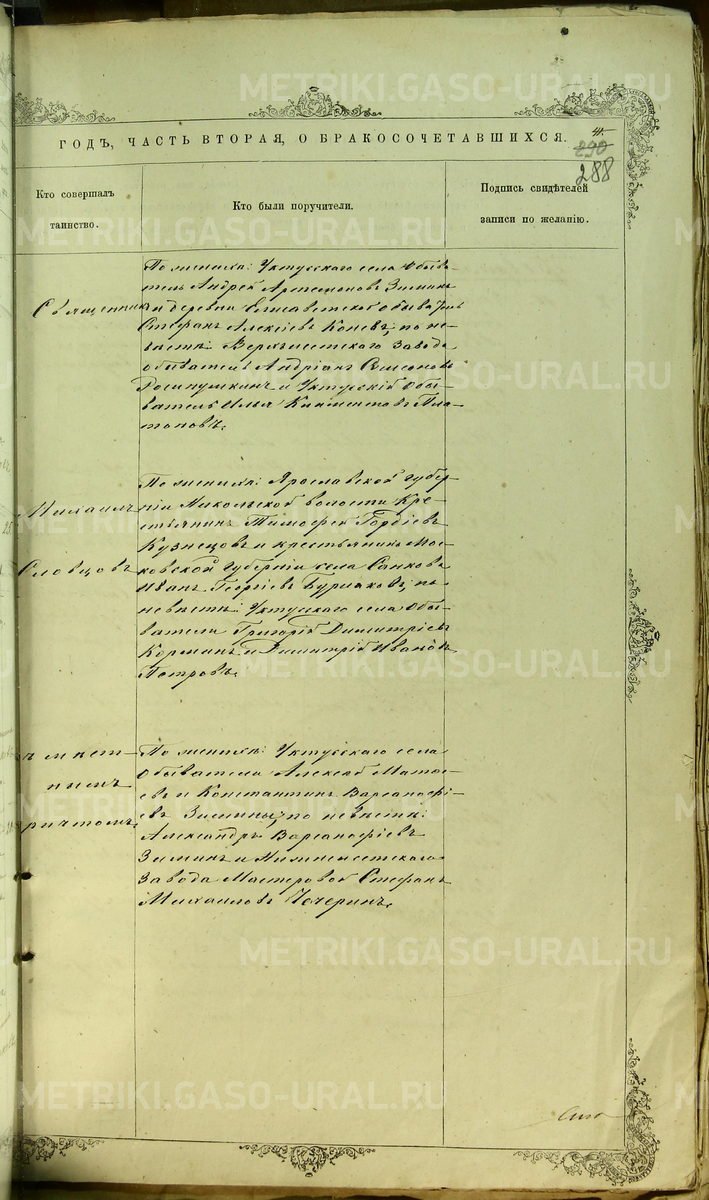 ГОДЪ, ЧАСТЬ ВТОРАЯ, О БРАКОСОЧЕТАВШИХСЯ.
290
288
Кто совершалъ
таинство.
Кто были поручители.
Подпись свидѣтелей
записи по желанію.
Священникъ
Михаилъ
Словцовъ
ъ мѣст-
нымъ
ричтомъ.
По женихѣ: Уктусскаго села Обыва-
тель Андрей Артемоновъ Зиминъ
и деревни Елисаветской обыватель
Стефанъ Алексіевъ Коневъ; по не-
вѣстѣ: Верхъисетскаго Завода
обыватель Андріанъ Симеоновъ
и Уктусскій Обы-
ватель Илья Климентовъ Пла-
тоновъ.
По женихѣ: Ярославской Губер-
ніи Никольской волости Кре-
стьянинъ Тимофей Гордіевъ
Кузнецовъ и крестьянинъ Мос-
ковской Губерніи села
Иванъ Георгіевъ Бурлаковъ; по
невѣстѣ: Уктусскаго села Обы-
ватели Григорій Димитріевъ
и Димитрій Ивановъ
Петровъ.
По женихѣ: Уктусскаго села
Обыватели Алексѣй Матѳе-
евъ и Константинъ Варсаноѳі-
евъ Зимины; по невѣстѣ:
Александръ Варсанофіевъ
Зиминъ и Нижнеисетскаго
Завода Мастеровой Стефанъ
Михаиловъ Чечеринъ.
METRIKI.GASO-URAL.RU